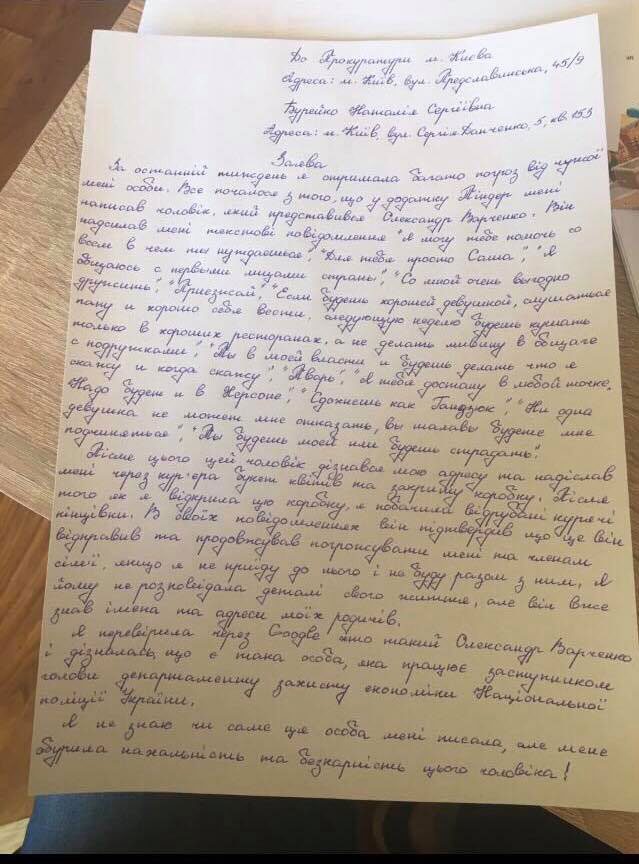 До Прокуратури м. Києва
Адреса: м. Київ, вул. Предславинська, 45/9
Бурейко Наталія Сергіївна
Адреса: м. Київ, вул. Сергія Данченко, 5, кв. 153
Заява
За останній тиждень я отримала багато погроз від чужої
мені особи. Все почалося з того, що у додатку Тіндер мені
написав чоловік, який представився Олександр Варченко. Він
надсилав мені текстові повідомлення "Я могу тебе помочь со
всем в чем ты нуждаешься", "Для тебя просто Саша", "Я
общаюсь с первыми лицами страны", "Со мной очень выгодно
дружить", "Приезжай", "Если будешь хорошей девушкой, слушаться
папу и хорошо себя вести. следующую неделю будешь кушать
только в хороших ресторанах, а не делать мивину в общаге
с подружками", "Ты в моей власти и будешь делать что я
скажу и когда скажу", "Тварь", "Я тебя достану в любой точке.
Надо будет и в Херсоне", "Сдохнешь как Гандзюк", "Ни одна
девушка не может мне отказать, вы шалавы будете мне
подчиняться", "Ты будешь моей или будешь страдать".
Після цього цей чоловік дізнався мою адресу та надіслав
мені через кур'єра букет квітів та закриту коробку. Після
того як я відкрила цю коробку, я побачила відрубані курячі
кінцівки. В своїх повідомленнях він підтвердив що це він
відправив та продовжував погрожувати мені та членам
сім'ї, якщо я не приїду до нього і не буду разом з ним. Я
йому не розповідала деталі свого життя, але він вже
знав імена та адреси моїх родичів.
Я перевірила через Google хто такий Олександр Варченко
і дізналась, що є така особа, яка працює заступником
голови департаменту захисту економіки Національної
поліції України.
Я не знаю чи саме ця особа мені писала, але мене
обурила нахальність та безкарність цього чоловіка!